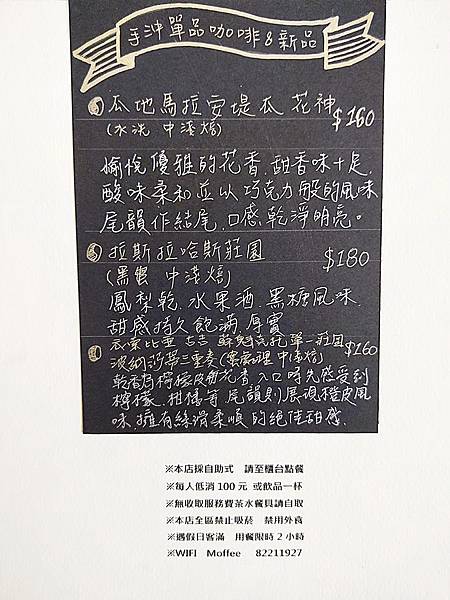 手沖單品咖啡&新品
瓜地馬拉安堤瓜 花神 $160
(水洗 中淺焙)
愉悅優雅的花香.甜香味十足.
酸味柔和並以巧克力般的風味
尾韻作結尾.口感乾淨明亮。
拉斯拉哈斯莊園 $180
(黑蜜 中淺焙)
鳳梨乾.水果酒.黑糖風味.
甜感持久飽滿.厚實
衣索比亞 古吉 單一莊園 $160
波納莎蒂三重奏 (蜜處理 中淺焙)
乾香有檸檬皮和花香 入口時先感受到
檸檬.柑橘等 尾韻則展現橙皮風
味.擁有絲滑柔順的絕佳甜感.
※本店採自助式 請至櫃台點餐
※每人低消 100 元 或飲品一杯
※無收取服務費茶水餐具請自取
※本店全區禁止吸菸 禁用外食
※遇假日客滿 用餐限時 2 小時
※WIFI Moffee 82211927